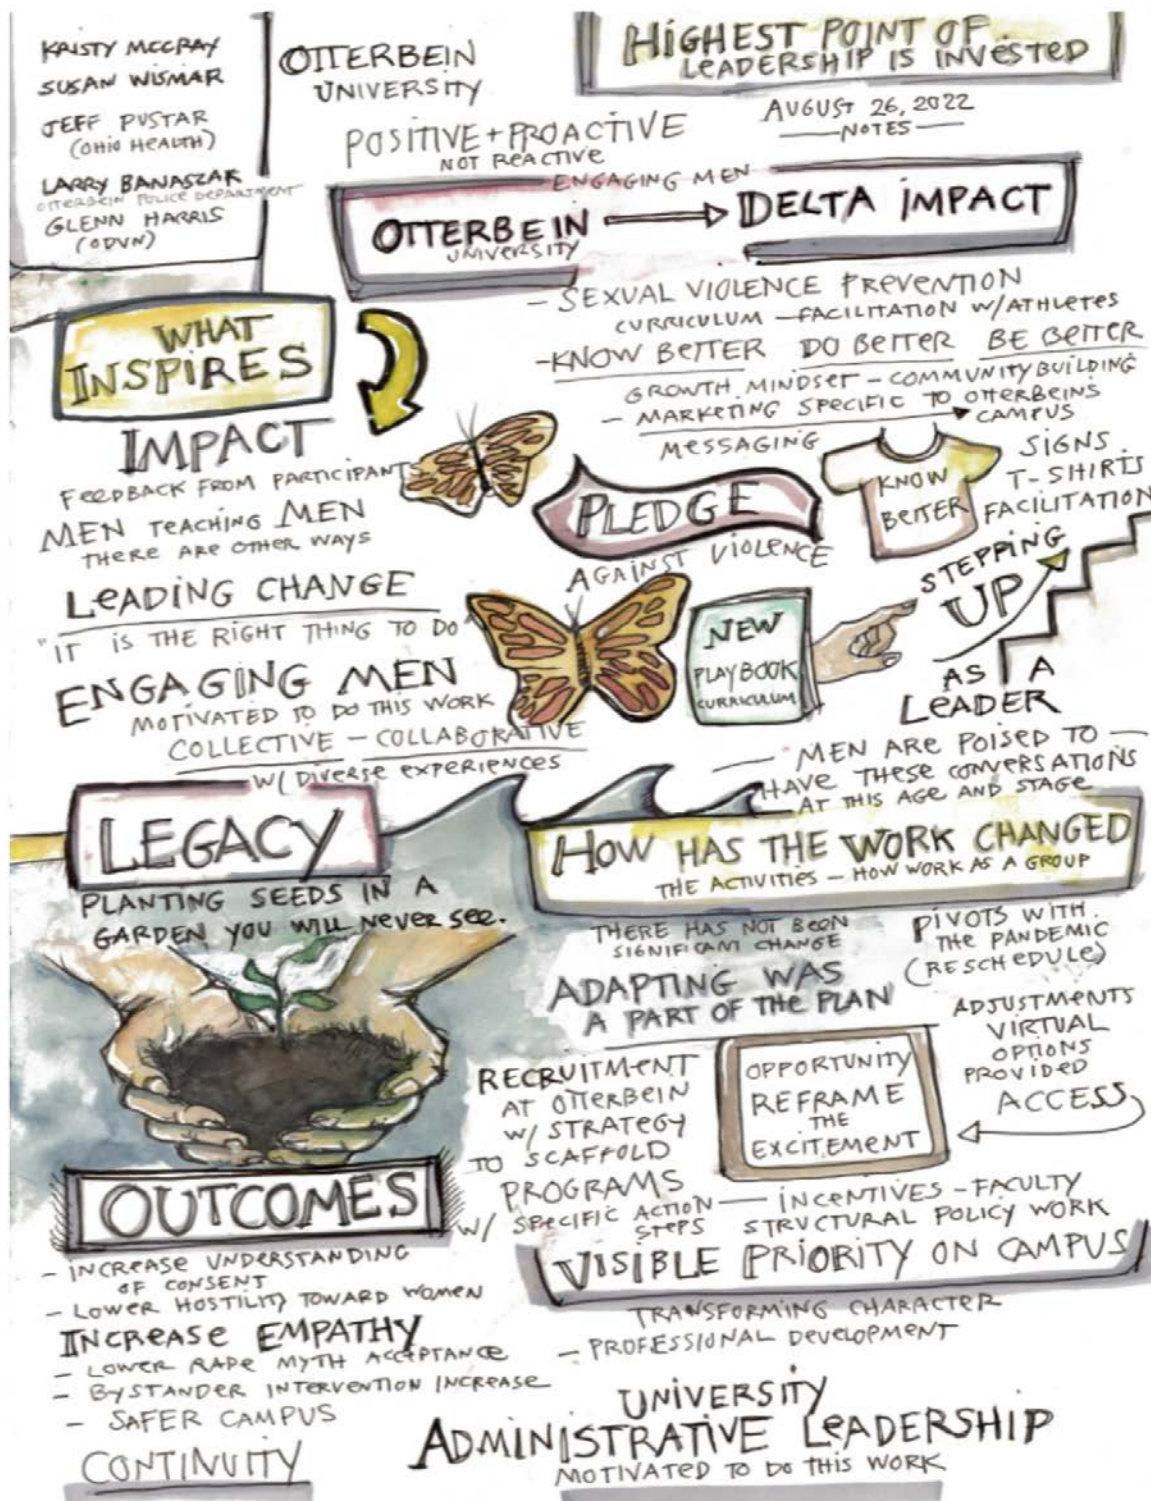 KRISTY MCCRAY
SUSAN WISMAR
JEFF PUSTAR
(OHIO HEALTH)
LARRY BANASZAK
OTTERBEIN POLICE DEPARTMENT
GLENN HARRIS
(ODVN)
OTTERBEIN
UNIVERSITY
HIGHEST POINT OF
LEADERSHIP IS INVESTED
AUGUST 26, 2022
— NOTES —
POSITIVE + PROACTIVE
NOT REACTIVE
ENGAGING MEN
OTTERBEIN → DELTA IMPACT
UNIVERSITY
- SEXUAL VIOLENCE PREVENTION
CURRICULUM - FACILITATION W/ ATHLETES
- KNOW BETTER DO BETTER BE BETTER
GROWTH MINDSET - COMMUNITY BUILDING
- MARKETING SPECIFIC TO OTTERBEINS
CAMPUS
MESSAGING
SIGNS
T-SHIRTS
FACILITATION
KNOW
BETTER
WHAT
INSPIRES
IMPACT
FEEDBACK FROM PARTICIPANTS
MEN TEACHING MEN
THERE ARE OTHER WAYS
PLEDGE
AGAINST VIOLENCE
LEADING CHANGE
"IT IS THE RIGHT THING TO DO"
ENGAGING MEN
MOTIVATED TO DO THIS WORK
COLLECTIVE - COLLABORATIVE
W/ DIVERSE EXPERIENCES
NEW
PLAYBOOK
CURRICULUM
STEPPING
UP
AS A
LEADER
— MEN ARE POISED TO —
HAVE THESE CONVERSATIONS
AT THIS AGE AND STAGE
LEGACY
PLANTING SEEDS IN A
GARDEN YOU WILL NEVER SEE.
HOW HAS THE WORK CHANGED
THE ACTIVITIES - HOW WORK AS A GROUP
THERE HAS NOT BEEN
SIGNIFICANT CHANGE
PIVOTS WITH
THE PANDEMIC
(RESCHEDULE)
ADAPTING WAS
A PART OF THE PLAN
ADJUSTMENTS
VIRTUAL
OPTIONS
PROVIDED
ACCESS
OPPORTUNITY
REFRAME
THE
EXCITEMENT
RECRUITMENT
AT OTTERBEIN
W/ STRATEGY
TO SCAFFOLD
PROGRAMS
W/ SPECIFIC ACTION
STEPS
— INCENTIVES - FACULTY
STRUCTURAL POLICY WORK
VISIBLE PRIORITY ON CAMPUS
TRANSFORMING CHARACTER
- PROFESSIONAL DEVELOPMENT
OUTCOMES
- INCREASE UNDERSTANDING
OF CONSENT
- LOWER HOSTILITY TOWARD WOMEN
INCREASE EMPATHY
- LOWER RAPE MYTH ACCEPTANCE
- BYSTANDER INTERVENTION INCREASE
- SAFER CAMPUS
CONTINUITY
UNIVERSITY
ADMINISTRATIVE LEADERSHIP
MOTIVATED TO DO THIS WORK